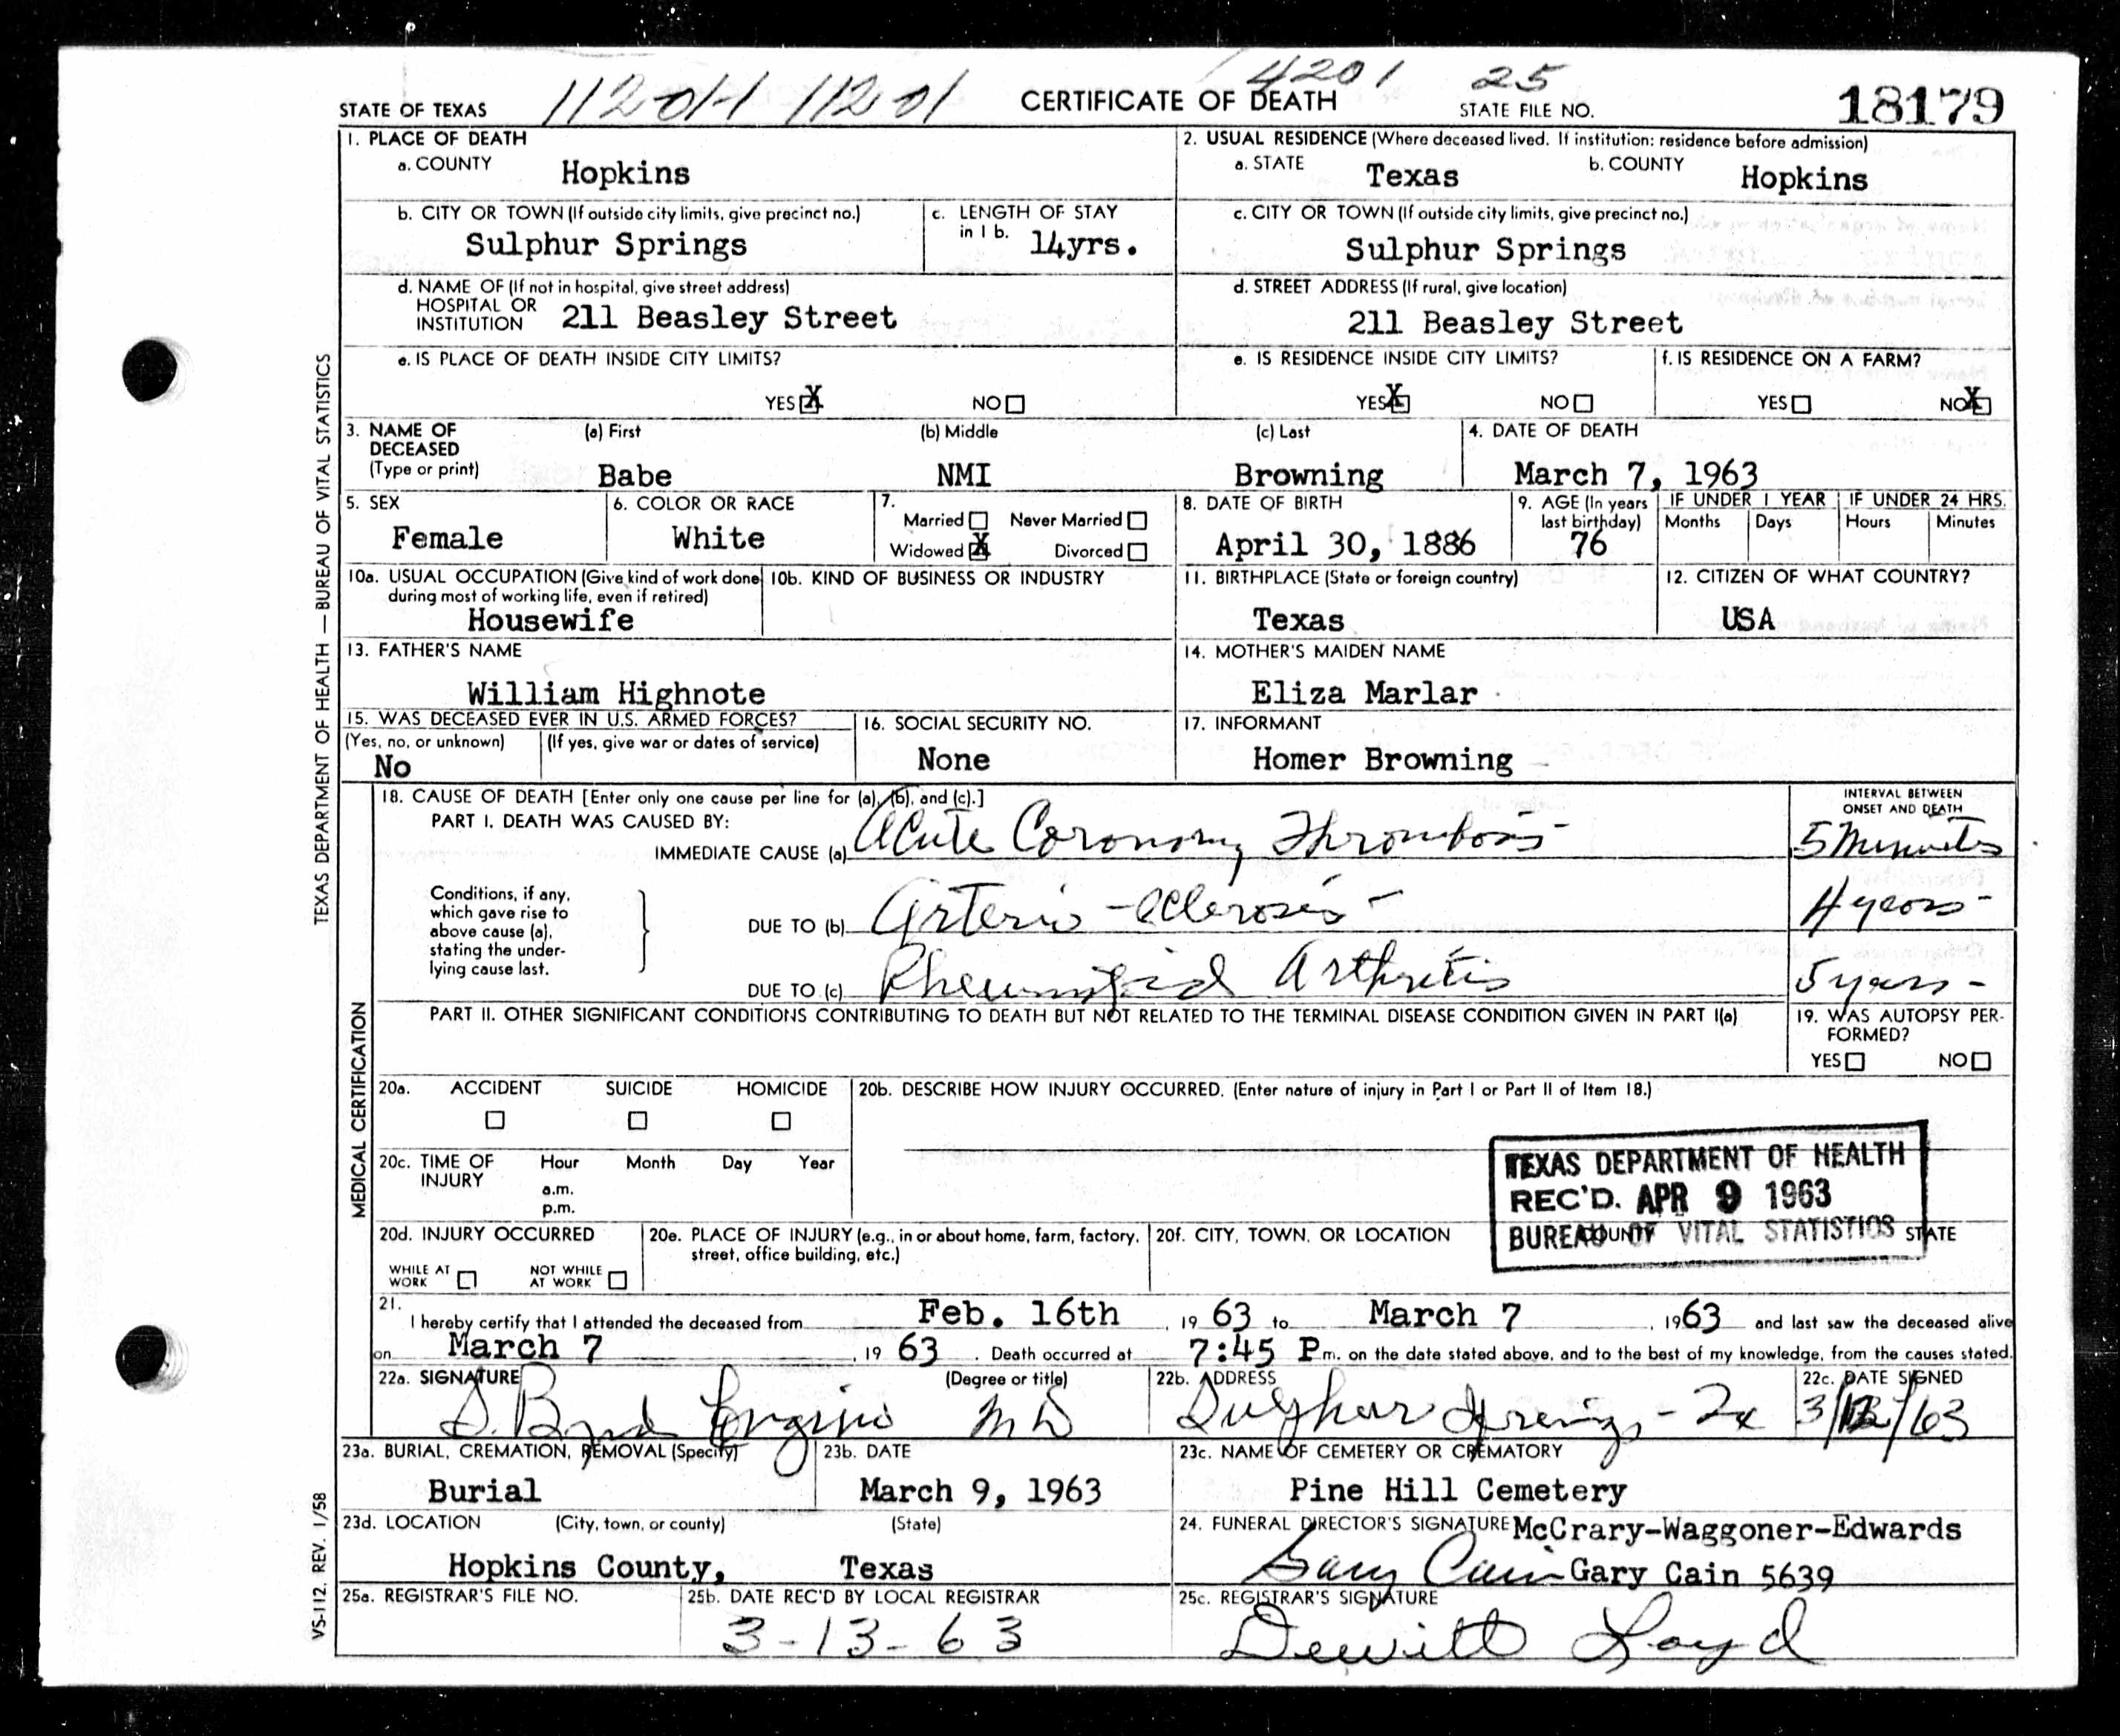 4201 25
STATE OF TEXAS 11201-1 11201 CERTIFICATE OF DEATH STATE FILE NO. 18179
1. PLACE OF DEATH
a. COUNTY Hopkins
2. USUAL RESIDENCE (Where deceased lived. If institution: residence before admission)
a. STATE Texas b. COUNTY Hopkins
b. CITY OR TOWN (If outside city limits, give precinct no.)
Sulphur Springs
c. LENGTH OF STAY
in 1 b. 14yrs.
c. CITY OR TOWN (If outside city limits, give precinct no.)
Sulphur Springs
d. NAME OF (If not in hospital, give street address)
HOSPITAL OR
INSTITUTION 211 Beasley Street
d. STREET ADDRESS (If rural, give location)
211 Beasley Street
e. IS PLACE OF DEATH INSIDE CITY LIMITS?
YES X NO
e. IS RESIDENCE INSIDE CITY LIMITS?
YES X NO
f. IS RESIDENCE ON A FARM?
YES NO X
3. NAME OF
DECEASED
(Type or print)
(a) First (b) Middle (c) Last
Babe NMI Browning
4. DATE OF DEATH
March 7, 1963
5. SEX
Female
6. COLOR OR RACE
White
7.
Married Never Married
Widowed X Divorced
8. DATE OF BIRTH
April 30, 1886
9. AGE (In years
last birthday)
76
IF UNDER 1 YEAR IF UNDER 24 HRS.
Months Days Hours Minutes
10a. USUAL OCCUPATION (Give kind of work done
during most of working life, even if retired)
Housewife
10b. KIND OF BUSINESS OR INDUSTRY
11. BIRTHPLACE (State or foreign country)
Texas
12. CITIZEN OF WHAT COUNTRY?
USA
13. FATHER'S NAME
William Highnote
14. MOTHER'S MAIDEN NAME
Eliza Marlar
15. WAS DECEASED EVER IN U.S. ARMED FORCES?
(Yes, no, or unknown) (If yes, give war or dates of service)
No
16. SOCIAL SECURITY NO.
None
17. INFORMANT
Homer Browning
18. CAUSE OF DEATH [Enter only one cause per line for (a), (b), and (c).]
PART I. DEATH WAS CAUSED BY:
IMMEDIATE CAUSE (a) Acute Coronary Thrombosis
INTERVAL BETWEEN
ONSET AND DEATH
5 Minutes
Conditions, if any,
which gave rise to
above cause (a),
stating the under-
lying cause last.
DUE TO (b) Arterio-sclerosis - 4 years -
DUE TO (c) Rheumatoid Arthritis 5 years -
PART II. OTHER SIGNIFICANT CONDITIONS CONTRIBUTING TO DEATH BUT NOT RELATED TO THE TERMINAL DISEASE CONDITION GIVEN IN PART I(a)
19. WAS AUTOPSY PER-
FORMED?
YES NO
20a. ACCIDENT SUICIDE HOMICIDE
20b. DESCRIBE HOW INJURY OCCURRED. (Enter nature of injury in Part I or Part II of Item 18.)
20c. TIME OF
INJURY
Hour Month Day Year
a.m.
p.m.
TEXAS DEPARTMENT OF HEALTH
REC'D. APR 9 1963
BUREAU OF VITAL STATISTICS
20d. INJURY OCCURRED
WHILE AT
WORK
NOT WHILE
AT WORK
20e. PLACE OF INJURY (e.g., in or about home, farm, factory,
street, office building, etc.)
20f. CITY, TOWN, OR LOCATION COUNTY STATE
21.
I hereby certify that I attended the deceased from Feb. 16th, 19 63 to March 7, 1963 and last saw the deceased alive
on March 7, 19 63. Death occurred at 7:45 P m. on the date stated above, and to the best of my knowledge, from the causes stated.
22a. SIGNATURE (Degree or title)
S. Byrd Longino MD
22b. ADDRESS
Sulphur Springs - Tx
22c. DATE SIGNED
3/12/63
23a. BURIAL, CREMATION, REMOVAL (Specify)
Burial
23b. DATE
March 9, 1963
23c. NAME OF CEMETERY OR CREMATORY
Pine Hill Cemetery
23d. LOCATION (City, town, or county) (State)
Hopkins County, Texas
24. FUNERAL DIRECTOR'S SIGNATURE McCrary-Waggoner-Edwards
Gary Cain Gary Cain 5639
25a. REGISTRAR'S FILE NO.
25b. DATE REC'D BY LOCAL REGISTRAR
3-13-63
25c. REGISTRAR'S SIGNATURE
Dewitt Loyd
TEXAS DEPARTMENT OF HEALTH — BUREAU OF VITAL STATISTICS
MEDICAL CERTIFICATION
VS-112. REV. 1/58